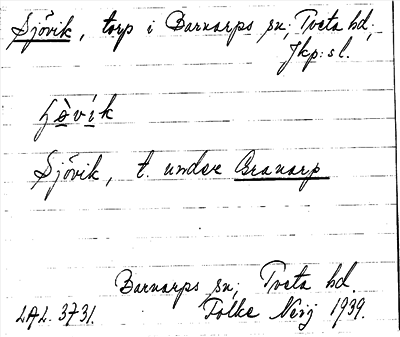 Sjövik, torp i Barnarps sn; Tveta hd,
Jkp:s l.
Sjövik, t. under Granarp
Barnarps sn; Tveta hd.
LAL. 3731. Folke 1939.